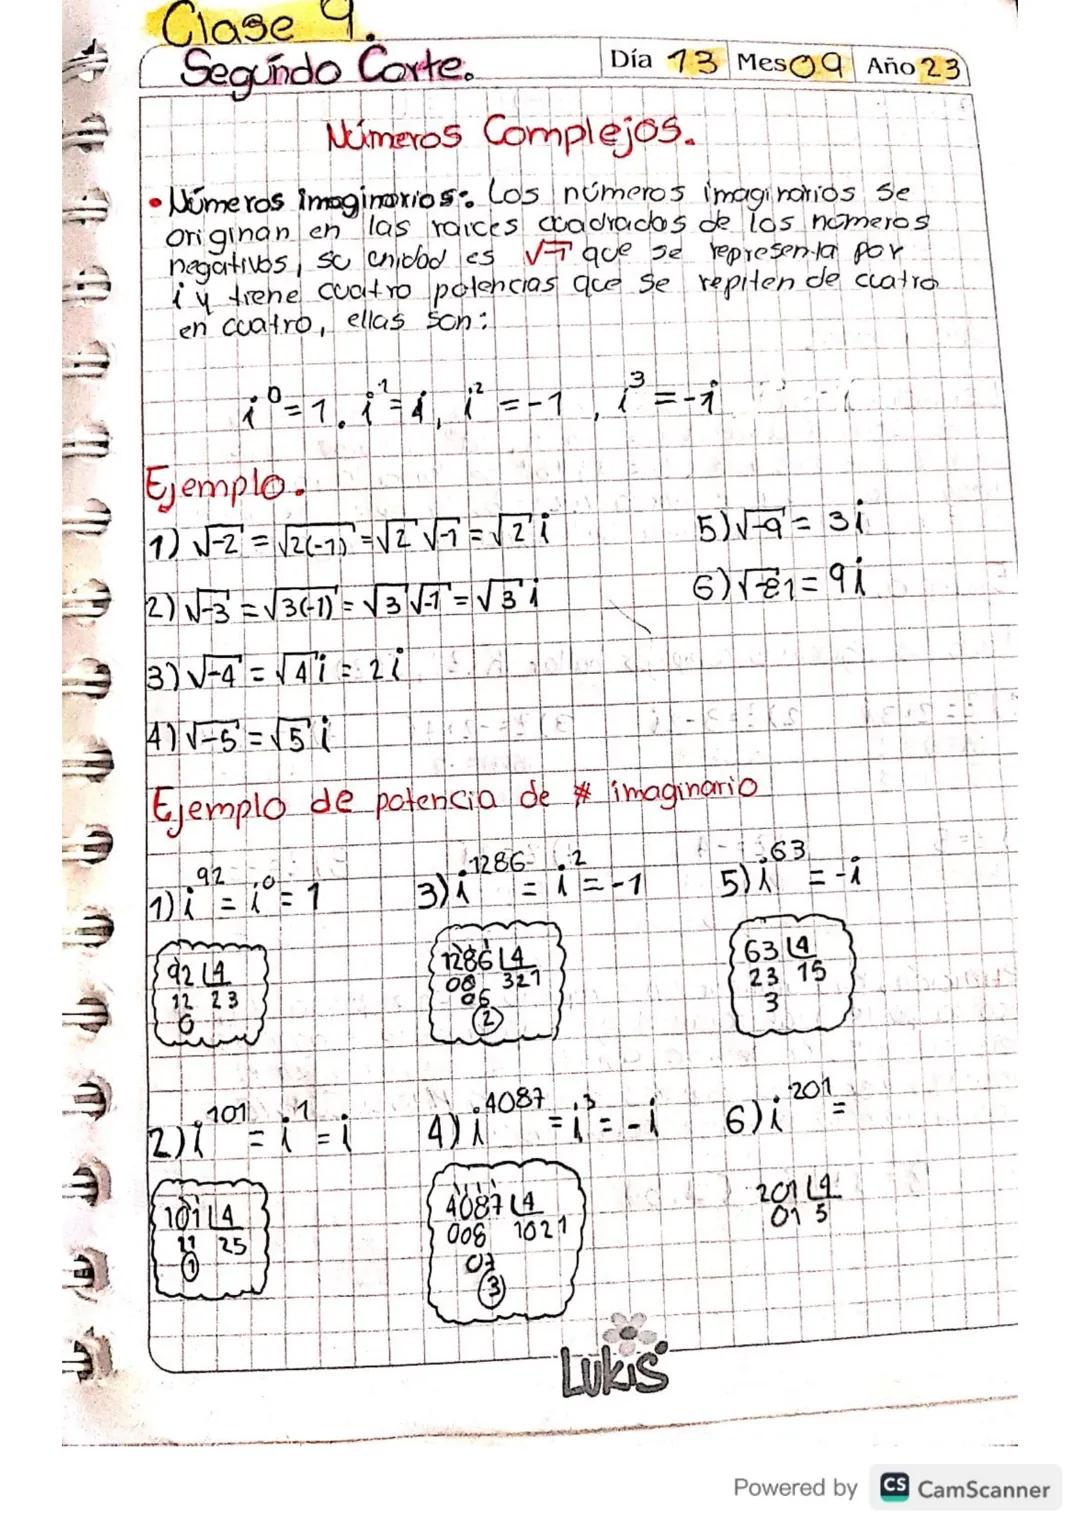 Clase 9.
Segundo Corte.
Día 13 Mes 09 Año 23
Números Complejos.
• Números imaginarios: Los números imaginarios se
originan en las raices cuadradas de los números
negativos, su unidad es √-1 que se representa por
i y tiene cuatro potencias que se repiten de cuatro
en cuatro, ellas son:
i⁰=1, i¹=i, i²=-1, i³=-i
Ejemplo.
1) √-2 = √2(-1) = √2 √-1 = √2 i
5) √-9 = 3i
2) √-3 = √3(-1) = √3 √-1 = √3 i
6) √-81 = 9i
3) √-4 = √4 i = 2i
4) √-5 = √5 i
Ejemplo de potencia de # imaginario
1) i⁹² = i⁰ = 1
3) i¹²⁸⁶ = i² = -1
5) i⁶³ = -i
92 ⌊4
12 23
0
1286 ⌊4
08 321
06
2
63 ⌊4
23 15
3
2) i¹⁰¹ = i¹ = i
4) i⁴⁰⁸⁷ = i³ = -i
6) i²⁰¹ =
101 ⌊4
21 25
1
4087 ⌊4
008 1021
07
3
201 ⌊4
01 5
Lukis
Powered by CS CamScanner